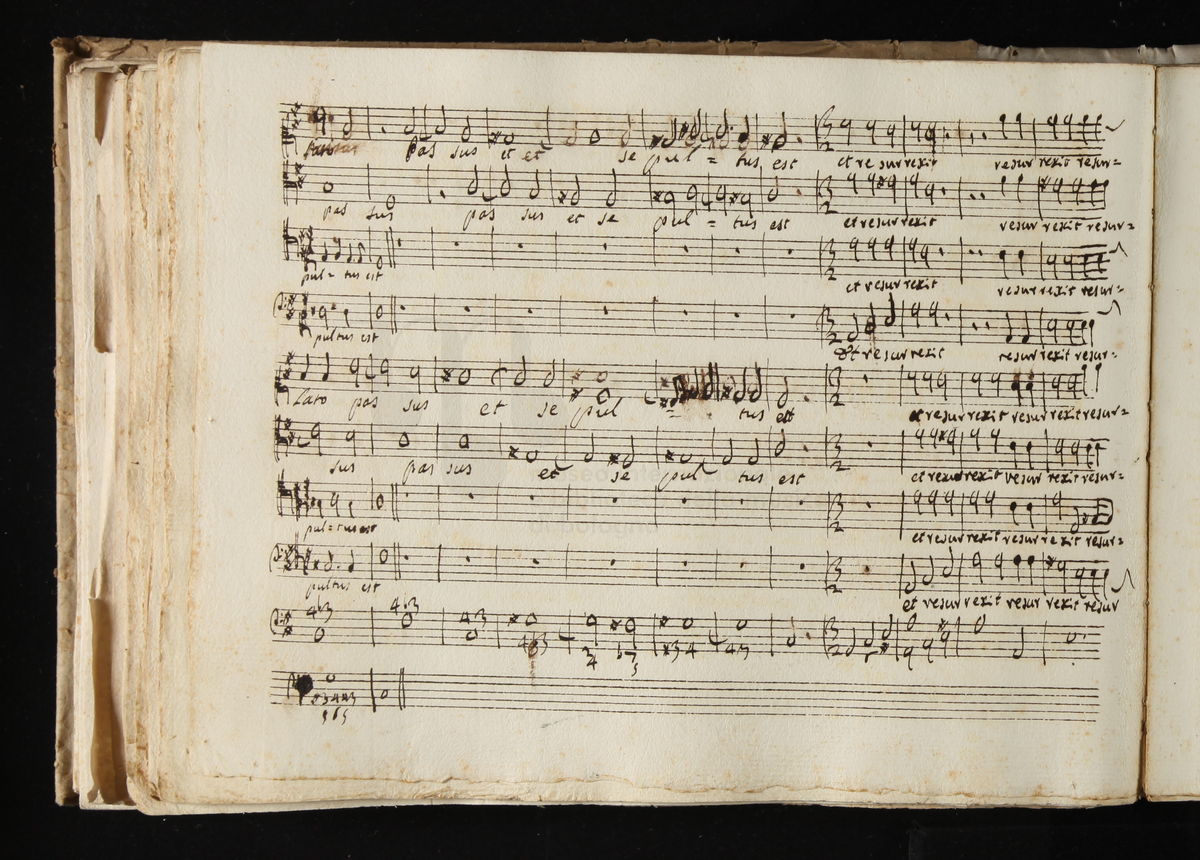 pas sus et et se pul = tus est et resurrexit resur rexit resur=
pas sus pas sus et se pul = tus est et resurrexit resur rexit resur=
pul= tus est et resurrexit resur rexit resur=
pultus est Et resurrexit resur rexit resur=
Lato pas sus et se pul = tus est et resur rexit resur rexit resur=
sus pas sus et se pul tus est et resur rexit resur rexit resur=
pul=tus est et resur rexit resur rexit resur=
pultus est et resur rexit resur rexit resur